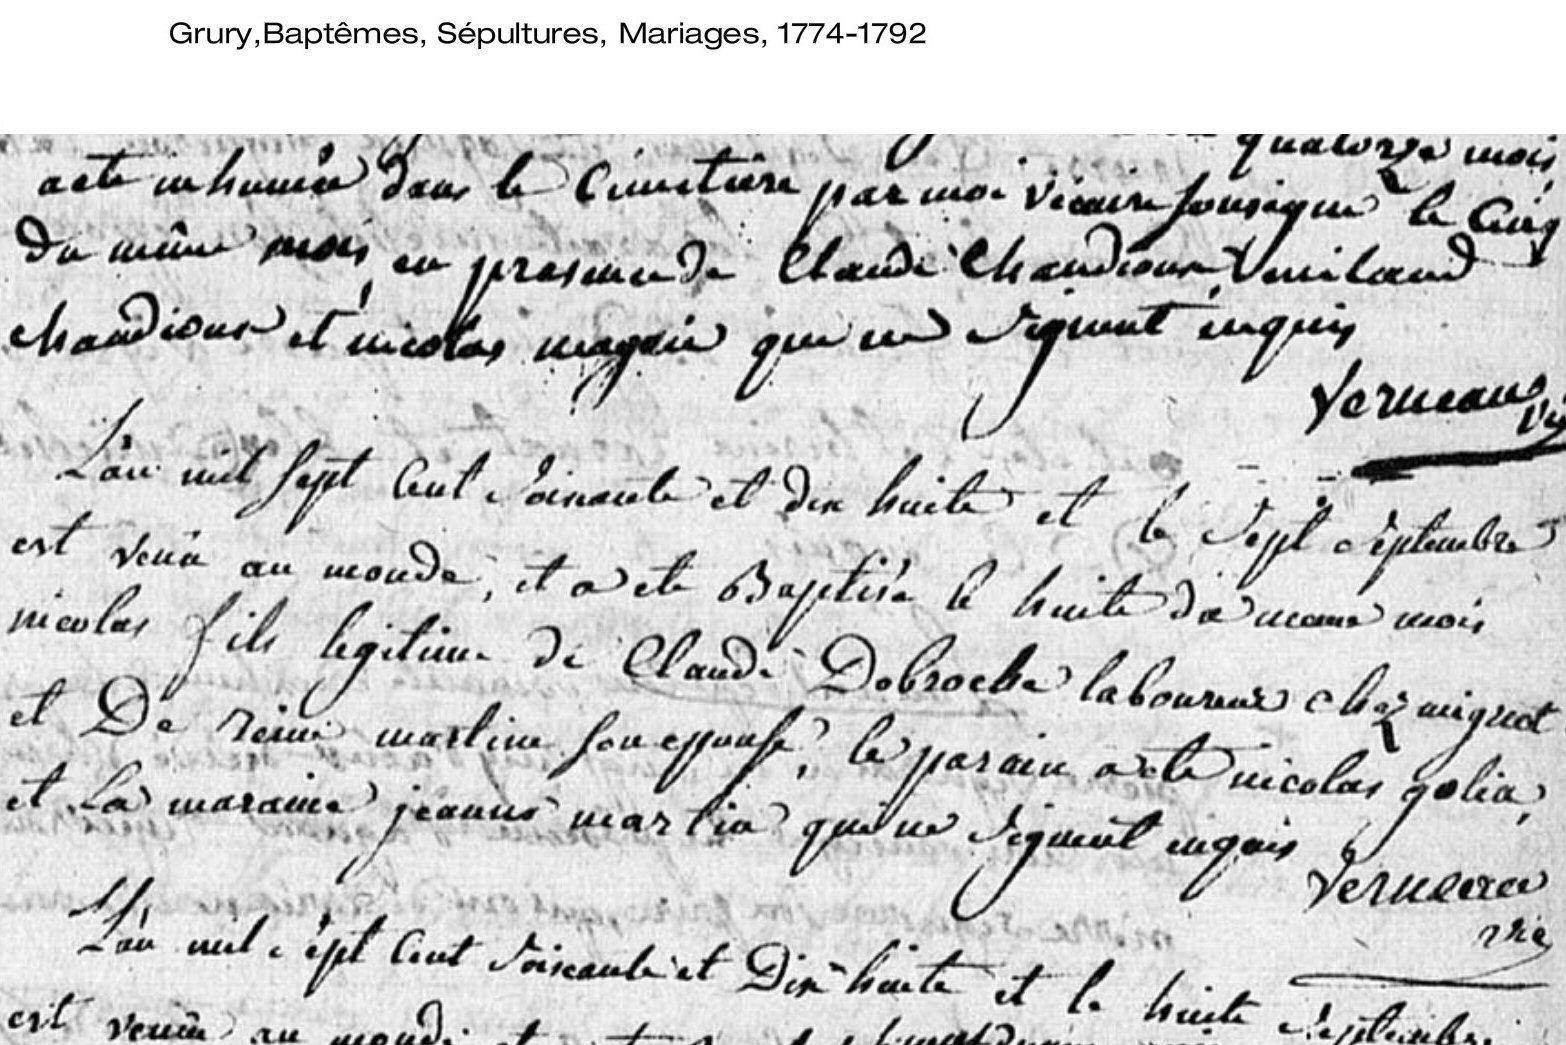 Grury,Baptêmes, Sépultures, Mariages, 1774-1792
quatorze mois
a ete inhumée dans le Cimetiere par moi vicaire sousigné le Cinq
du même mois, en presence de Claude Chandioux, Venilaud
chandioux et nicolas magnie qui ne signent enquis
Verneau vic
L'an mil sept Cent soixante et dix huite et le sept septembre
est venu au monde, et a ete Baptisé le huite du meme mois
nicolas fils legitime de Claude Debroche laboureur chez mignot
et De reine martine son epouse, le parain a ete nicolas golia,
et La maraine jeanne martin qui ne signent enquis
Verneau
vic
L'an mil sept Cent soixante et Dix huite et le huite septembre
est venue au monde et